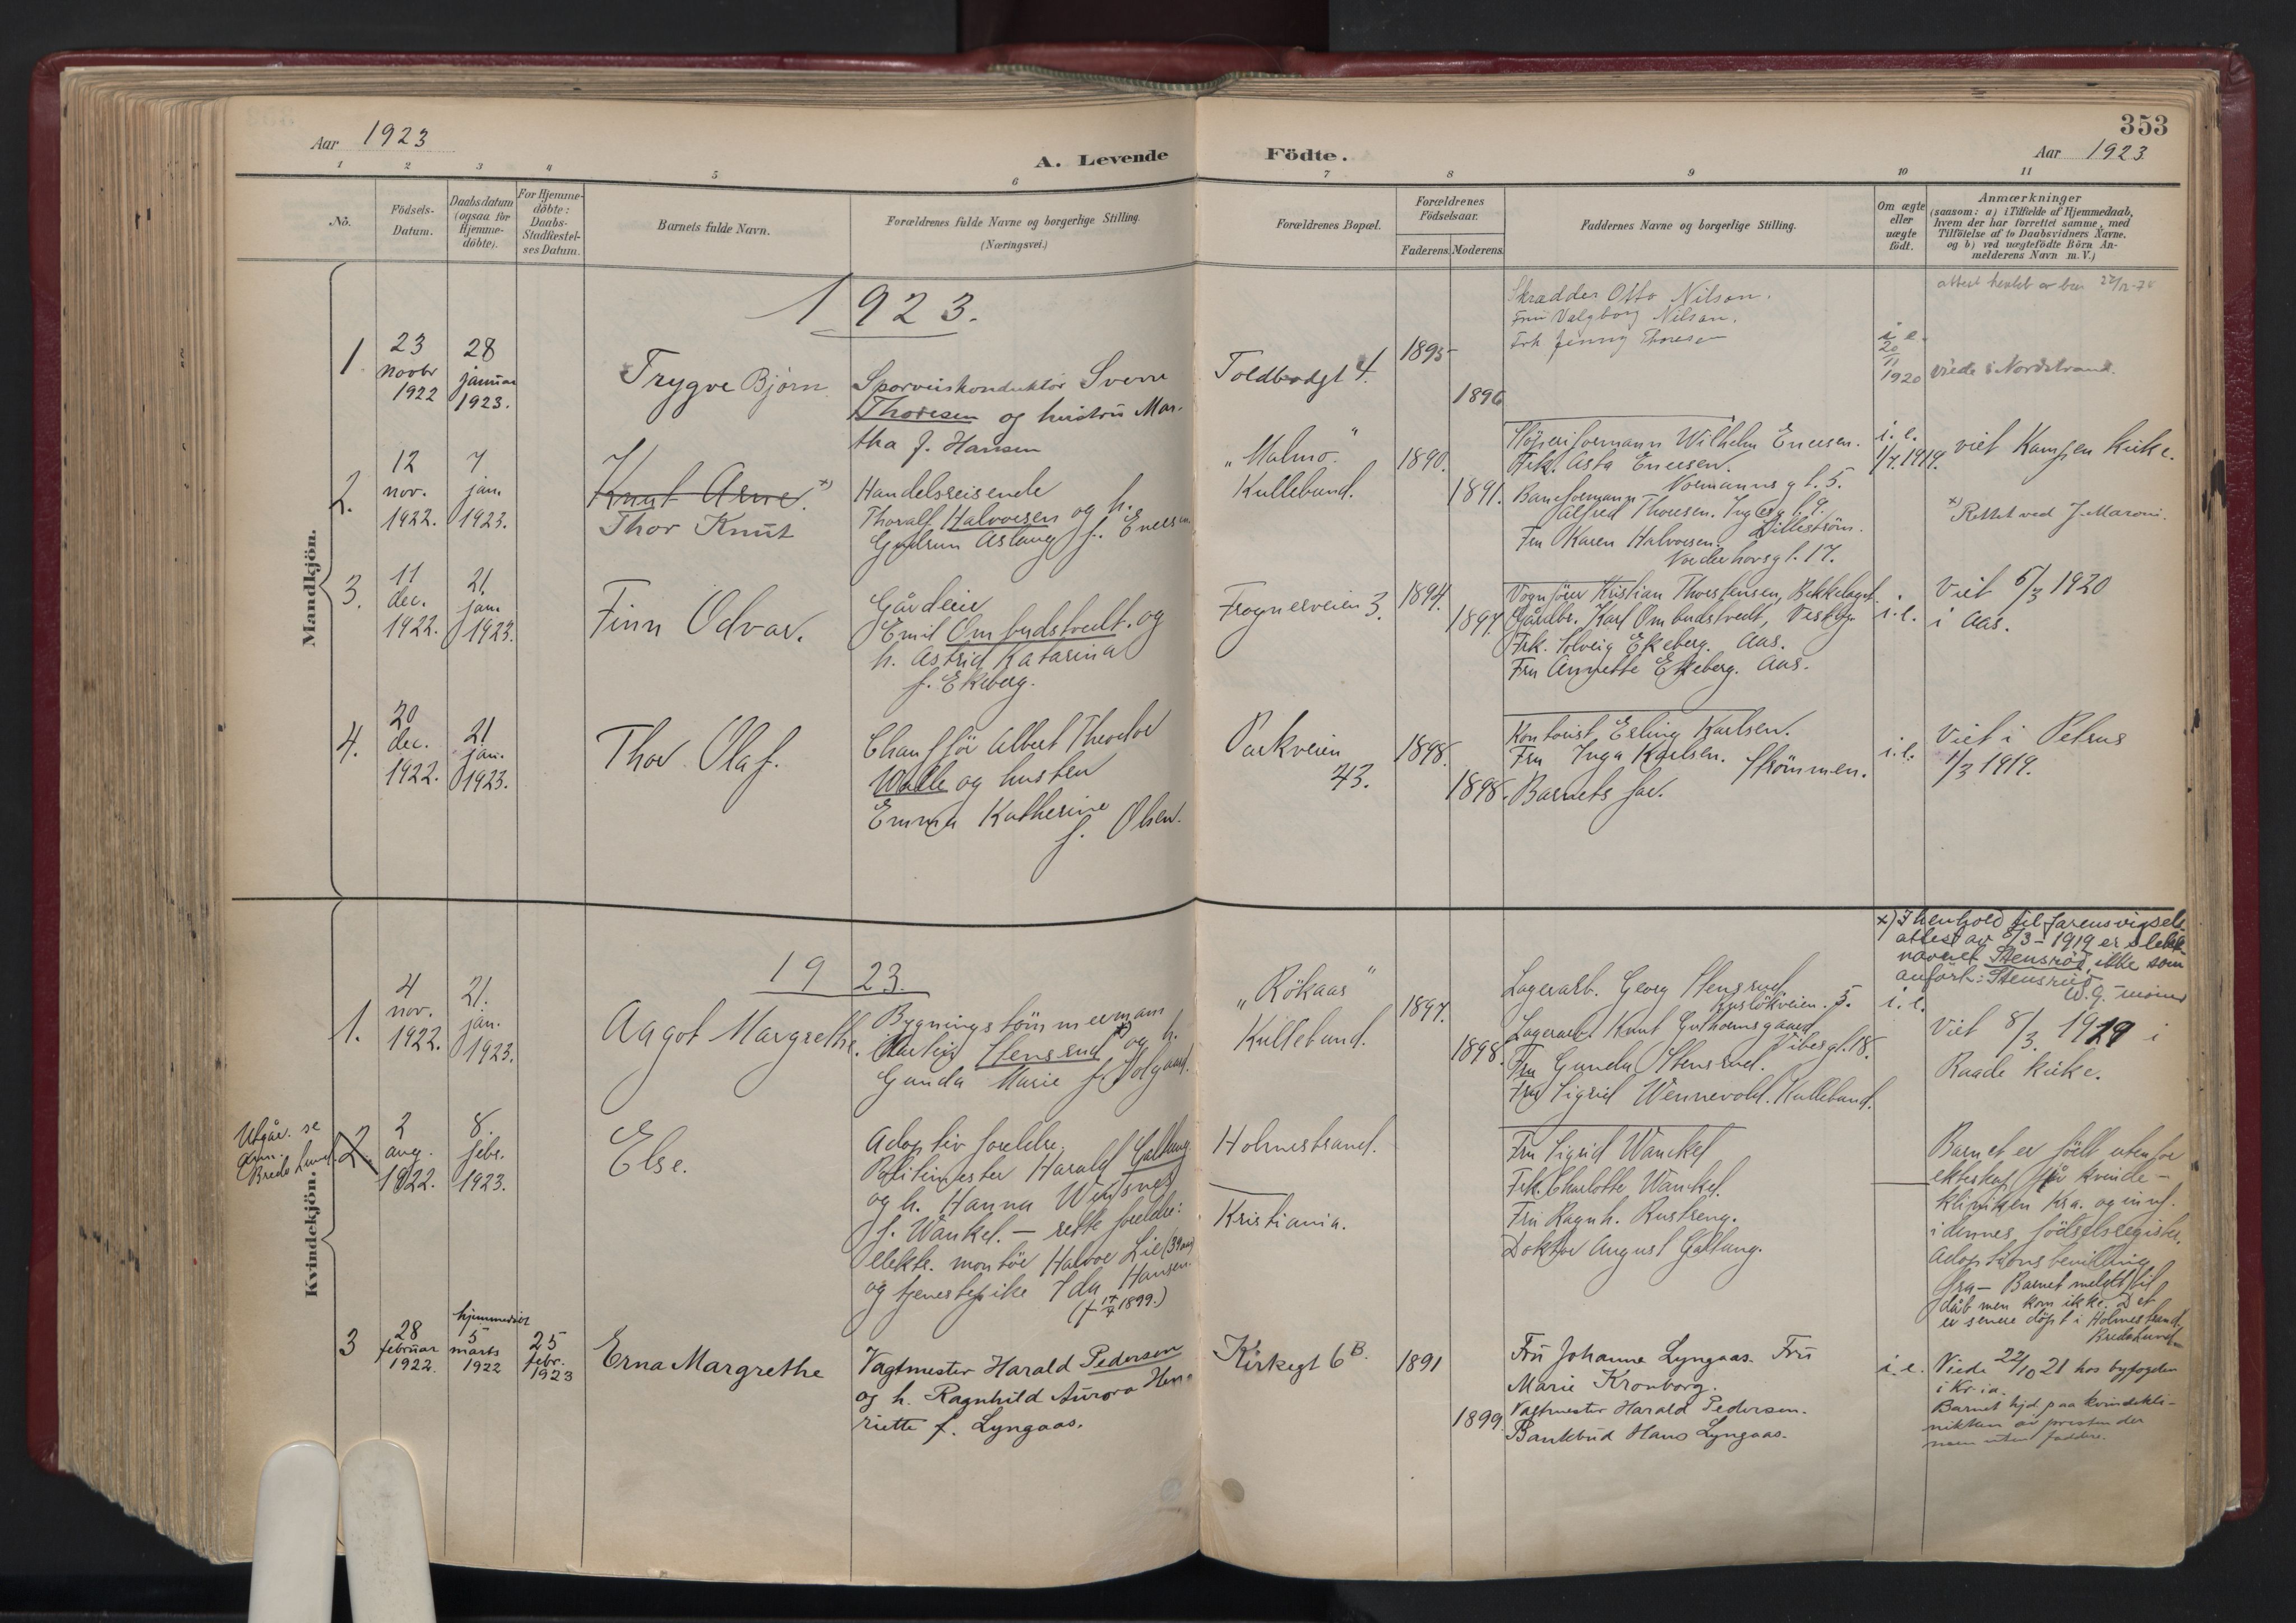 353
Aar 1923
A. Levende Födte.
Aar 1923
1 2 3 4 5 6 7 8 9 10 11
No.
Födsels-
Datum.
Daabsdatum
(ogsaa for
Hjemme-
döbte).
For Hjemme-
döbte:
Daabs-
Stadfestel-
ses Datum.
Barnets fulde Navn.
Forældrenes fulde Navne og borgerlige Stilling.
(Næringsvei.)
Forældrenes Bopæl.
Forældrenes
Födselsaar.
Faderens Moderens
Faddernes Navne og borgerlige Stilling.
Om ægte
eller
uægte
födt.
Anmærkninger
(saasom: a) i Tilfælde af Hjemmedaab,
hvem der har forrettet samme, med
Tilföielse af to Daabsvidners Navne.
og b) ved uægtefödte Börn An-
melderens Navn m. V.)
Mandkjön.
1923.
1
23
novbr
1922
28
januar
1923.
Trygve Bjørn
Sporveiskonduktør Sverre
Thoresen og hustru Mar-
tha f. Hansen
Toldbodgt 4.
1895
1896
Skrædder Otto Nilsen.
Fru Valgborg Nilsen.
Frk Jenny Thoresen
i e.
20
11
1920
attest hentet av
viede i Nordstrand.
2.
12
nov.
1922.
7
jan.
1923.
Knut Arne. x)
Thor Knut
Handelsreisende
Thoralf Halvorsen og h.
Gudrun Aslaug f. Enersen
"Malmo"
Kullebund.
1890.
1891.
Støperiformann Wilhelm Enersen.
Frk. Asta Enersen.
Normannsgt. 5.
Baneformann
Alfred Thoresen.
Lilleström.
Fru Karen Halvorsen.
Norderhovsgt. 17.
i. e.
1/7. 1919.
viet Kampen kirke.
x) Rettet ved J. Maroni.
3.
11
dec.
1922.
21.
jan.
1923.
Finn Odvar.
Gårdeier
Emil Ombudstvedt. og
h. Astrid Katarina
f. Ekeberg.
Frognerveien 3.
1894.
1897.
Vognfører Kristian Thorstensen, Bekkelaget.
Gårdbr. Karl Ombudstvedt, Vestby.
Frk. Solveig Ekeberg. Aas.
Fru Annette Ekeberg. Aas.
i. e.
Viet 5/3 1920
i Aas.
4.
20
dec.
1922.
21
jan.
1923.
Thor Olaf.
Chauffør Albert Theodor
Walle og hustru
Emma Katherine
f. Olsen.
Parkveien
43.
1898.
1898.
Kontorist Erling Karlsen.
Fru Inga Karlsen. Strömmen.
Barnets far.
i. e.
Viet i Petrus
1/3 1919.
Kvindekjön.
1923.
1.
4
nov.
1922.
21.
jan.
1923.
Aagot Margrethe.
Bygningstömmermann
Stensrud x) og h.
Gunda Marie f. Holgaard.
"Rökaas"
Kullebund.
1897.
1898.
Lagerarb. Georg Stensrud
Ruslökveien. 5.
Lagerarb. Knut Gulhaugsgaard
Vibesgt. 18.
Fru Gunda Stensrud.
Fru Sigrid Wennevold. Kullebund.
i. e.
x) I henhold til farens vigsels-
attest av 8/3-1919 er slekts-
navnet Stensröd, ikke som
anfört: Stensrud
Viet 8/3. 1919 i
Raade kirke.
Utgår. se
anm.
Bredo Lund.
2.
2
aug.
1922.
8.
febr.
1923.
Else.
Adoptivforeldre.
Politimester Harald Galtung
og h. Hanna
f. Wankel. — rette foreldre:
elektr. montör Halvor Lie (39 aar)
og tjenestepike Ida Hansen.
(f. 17/4 1899.)
Holmestrand.
Kristiania.
Fru Sigrid Wankel
Frk. Charlotte Wankel.
Fru Ragnh. Rustreng.
Doktor August Galtung.
Barnet er födt utenfor
ekteskap på kvinde-
klinikken Kra. og innf.
i dennes födselsregister.
Adoptionsbevilling
fra — Barnet meldt til
dåb men kom ikke. Det
er senere döpt i Holmestrand.
Bredo Lund.
3
28
februar
1922.
hjemmedöpt
5
marts
1922
25
febr.
1923
Erna Margrethe
Vagtmester Harald Pedersen
og h. Ragnhild Aurora Hen-
riette f. Lyngaas.
Kirkegt 6B.
1891
1899.
Fru Johanne Lyngaas. Fru
Marie Kronborg.
Vagtmester Harald Pedersen.
Bankbud Hans Lyngaas.
i. e.
Viede 22/10 21 hos byfogden
i Kr.ia.
Barnet hjd. paa kvindekli-
nikken av presten der
men uten faddere.